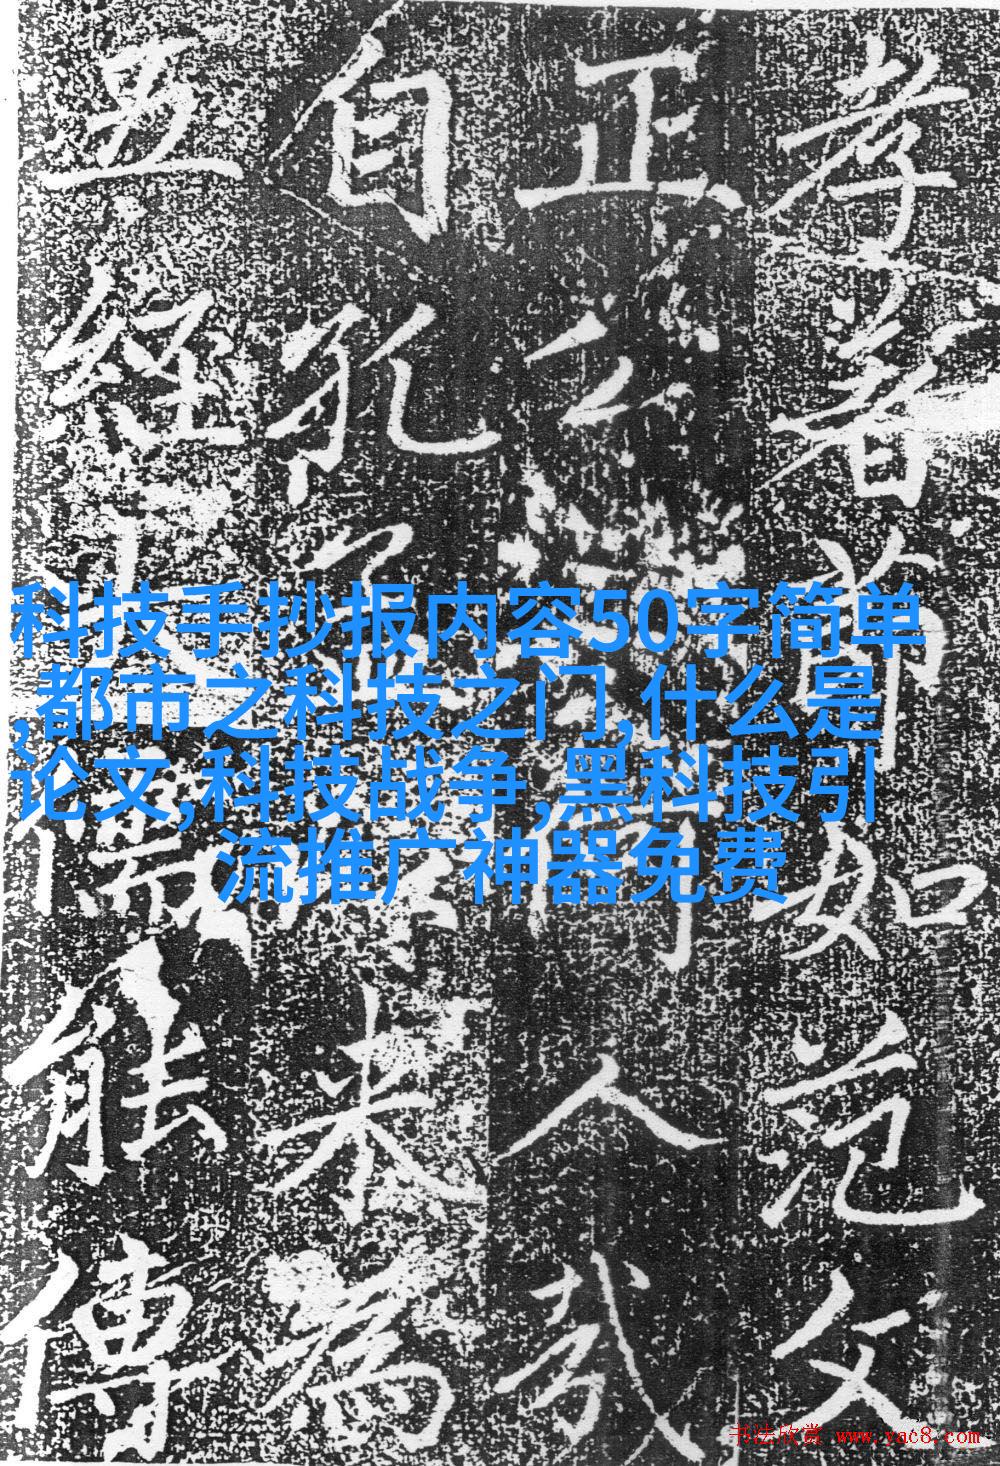 孝者節
如范文
正公
人哉
自孔
本為
五經
儒能傳
科技手抄报内容50字简单
,都市之科技之门,什么是
论文,科技战争,黑科技引
流推广神器免费
书法欣赏 www.yac8.com